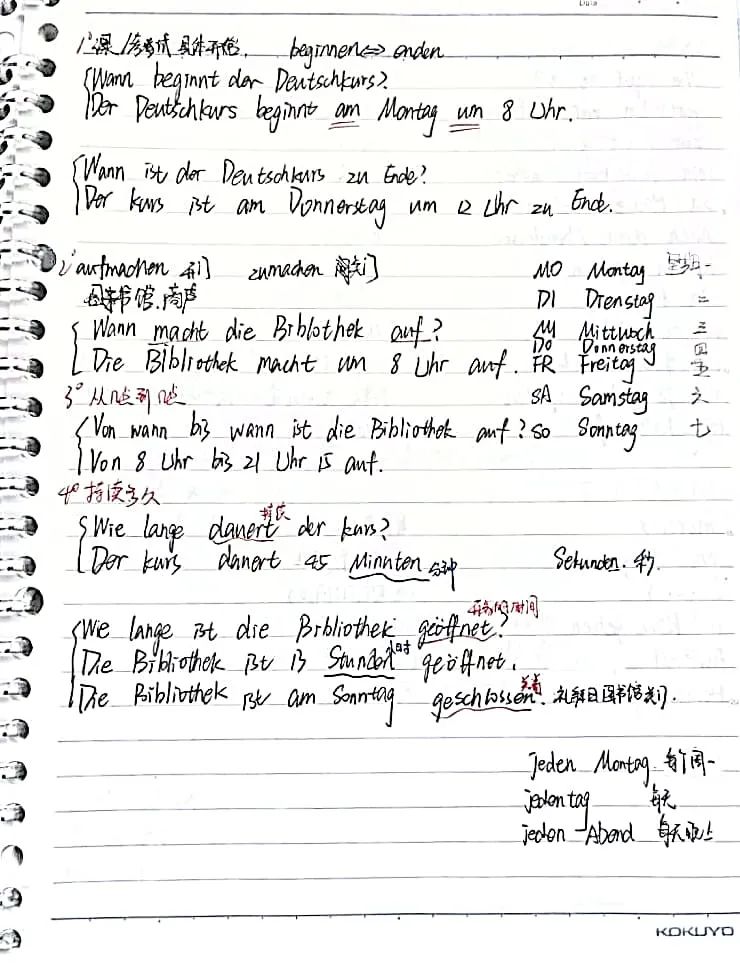 1° 课/考试 具体开始. beginnen⇔enden
Wann beginnt der Deutschkurs?
Der Deutschkurs beginnt am Montag um 8 Uhr.
Wann ist der Deutschkurs zu Ende?
Der kurs ist am Donnerstag um 12 Uhr zu Ende.
2° aufmachen 开门 zumachen 关门 MO Montag 星期一
图书馆、商店 DI Dienstag 二
Wann macht die Biblothek auf? MI Mittwoch 三
DO Donnerstag 四
Die Bibliothek macht um 8 Uhr auf. FR Freitag 五
3° 从几点到几点 SA Samstag 六
Von wann bis wann ist die Bibliothek auf? SO Sonntag 七
Von 8 Uhr bis 21 Uhr 15 auf.
4° 持续多久
持续
Wie lange dauert der kurs?
Der kurs dauert 45 Minuten 分钟 Sekunden. 秒.
开着的时间
Wie lange ist die Bibliothek geöffnet?
Die Bibliothek ist 13 Stunden 小时 geöffnet.
关着
Die Bibliothek ist am Sonntag geschlossen. 礼拜日图书馆关门.
jeden Montag 每个周一
jeden tag 每天
jeden Abend 每天晚上
KOKUYO